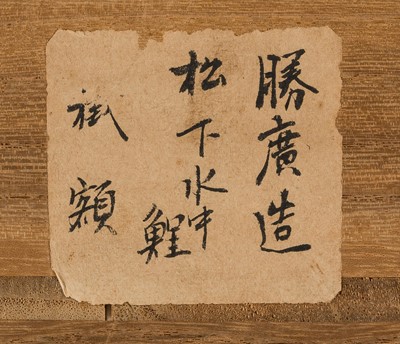 勝廣造
松下水中鯉
額